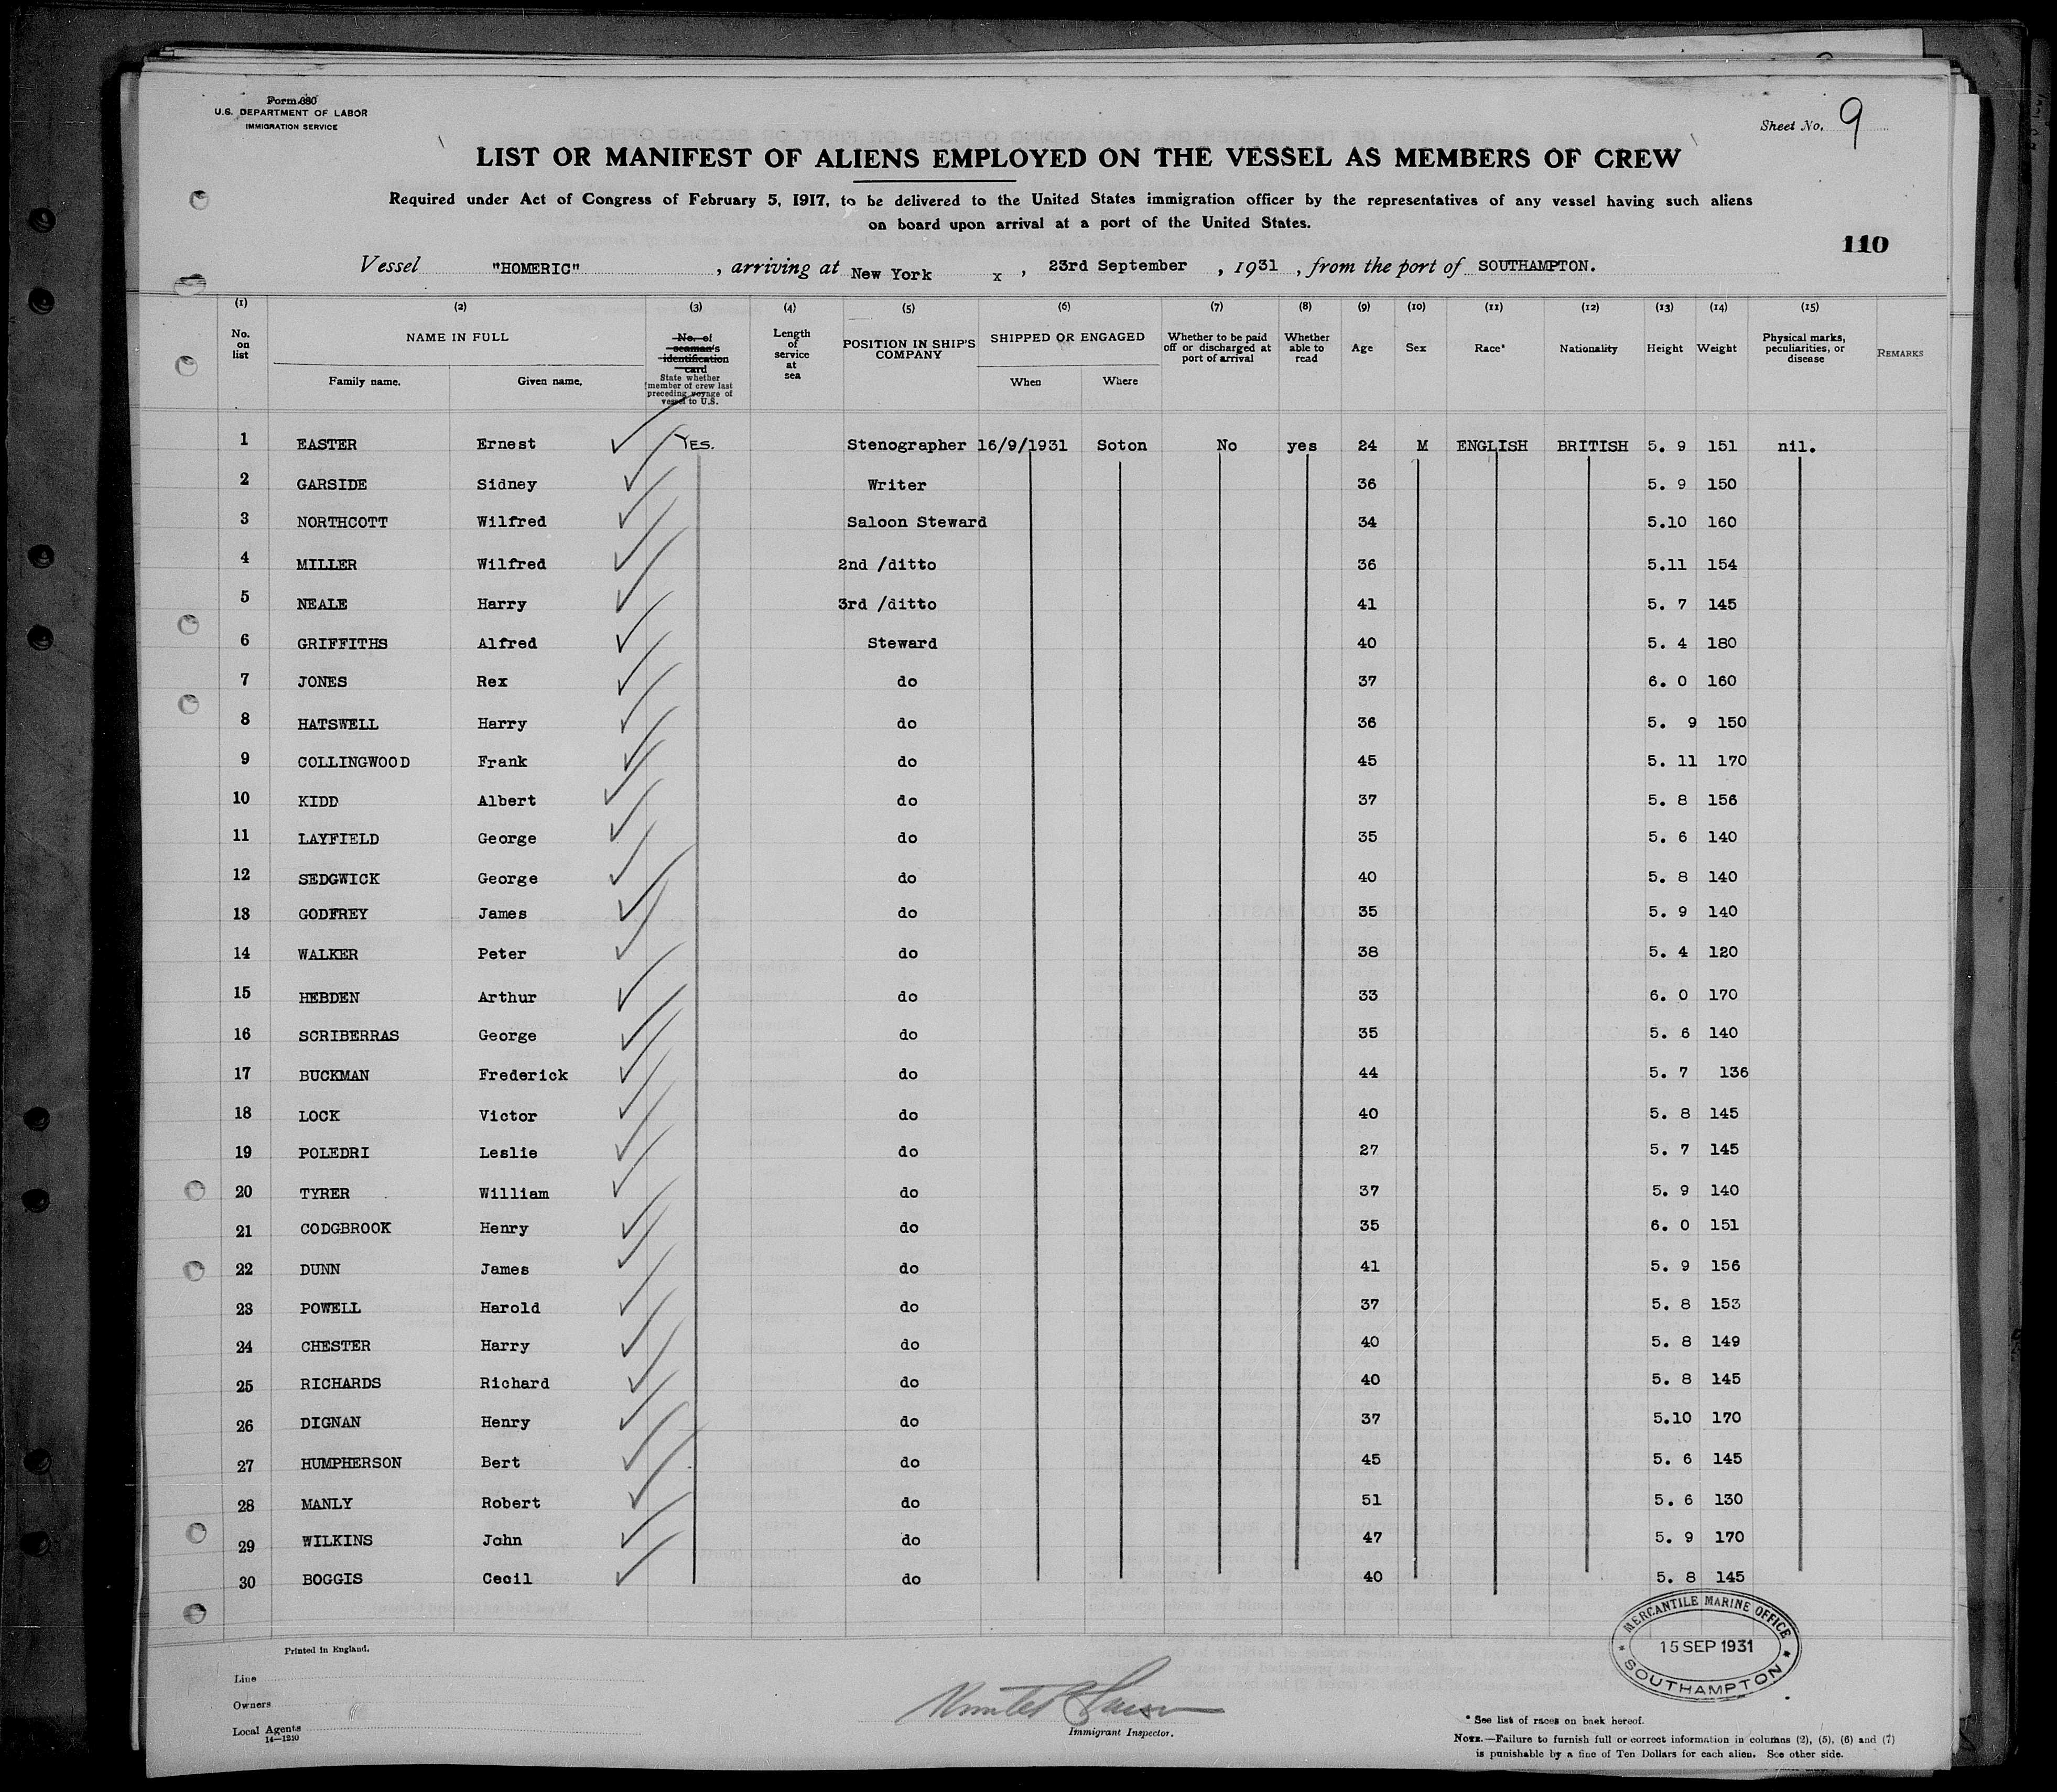 Form 680
U.S. DEPARTMENT OF LABOR
IMMIGRATION SERVICE
Sheet No. 9
LIST OR MANIFEST OF ALIENS EMPLOYED ON THE VESSEL AS MEMBERS OF CREW
Required under Act of Congress of February 5, 1917, to be delivered to the United States immigration officer by the representatives of any vessel having such aliens
on board upon arrival at a port of the United States.
110
Vessel "HOMERIC", arriving at New York x, 23rd September, 1931, from the port of SOUTHAMPTON.
(1) (2) (3) (4) (5) (6) (7) (8) (9) (10) (11) (12) (13) (14) (15)
No. on list NAME IN FULL Family name. Given name. No. of seaman's identification card State whether member of crew last preceding voyage of vessel to U.S. Length of service at sea POSITION IN SHIP'S COMPANY SHIPPED OR ENGAGED When Where Whether to be paid off or discharged at port of arrival Whether able to read Age Sex Race* Nationality Height Weight Physical marks, peculiarities, or disease REMARKS
1 EASTER Ernest YES. Stenographer 16/9/1931 Soton No yes 24 M ENGLISH BRITISH 5. 9 151 nil.
2 GARSIDE Sidney Writer 36 5. 9 150
3 NORTHCOTT Wilfred Saloon Steward 34 5.10 160
4 MILLER Wilfred 2nd /ditto 36 5.11 154
5 NEALE Harry 3rd /ditto 41 5. 7 145
6 GRIFFITHS Alfred Steward 40 5. 4 180
7 JONES Rex do 37 6. 0 160
8 HATSWELL Harry do 36 5. 9 150
9 COLLINGWOOD Frank do 45 5. 11 170
10 KIDD Albert do 37 5. 8 156
11 LAYFIELD George do 35 5. 6 140
12 SEDGWICK George do 40 5. 8 140
13 GODFREY James do 35 5. 9 140
14 WALKER Peter do 38 5. 4 120
15 HEBDEN Arthur do 33 6. 0 170
16 SCRIBERRAS George do 35 5. 6 140
17 BUCKMAN Frederick do 44 5. 7 136
18 LOCK Victor do 40 5. 8 145
19 POLEDRI Leslie do 27 5. 7 145
20 TYRER William do 37 5. 9 140
21 CODGBROOK Henry do 35 6. 0 151
22 DUNN James do 41 5. 9 156
23 POWELL Harold do 37 5. 8 153
24 CHESTER Harry do 40 5. 8 149
25 RICHARDS Richard do 40 5. 8 145
26 DIGNAN Henry do 37 5.10 170
27 HUMPHERSON Bert do 45 5. 6 145
28 MANLY Robert do 51 5. 6 130
29 WILKINS John do 47 5. 9 170
30 BOGGIS Cecil do 40 5. 8 145
MERCANTILE MARINE OFFICE
15 SEP 1931
SOUTHAMPTON
Printed in England.
Line
Owners
Local Agents
14—1210
Immigrant Inspector.
* See list of races on back hereof.
NOTE.—Failure to furnish full or correct information in columns (2), (5), (6) and (7)
is punishable by a fine of Ten Dollars for each alien. See other side.